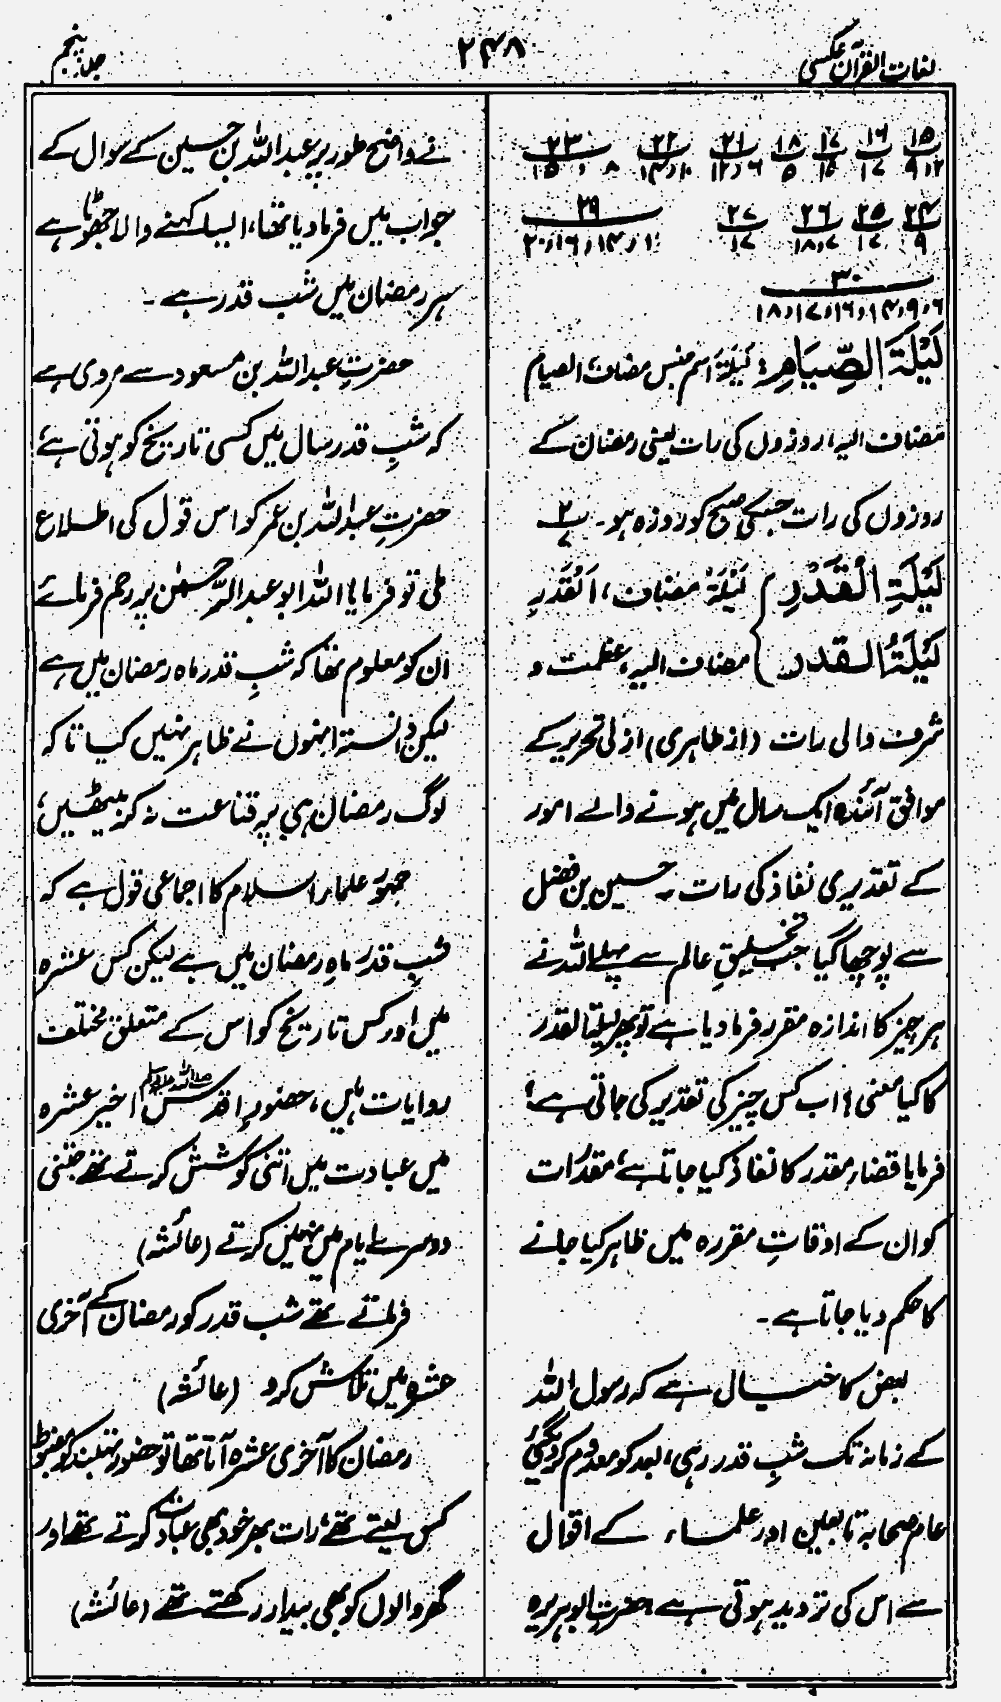 لغات القرآن عکسی
۲۴۸
جلد پنجم
۱۵ ۱۶ ۱۷ ۱۸ ۲۱ ۲۲ ۲۳
۹،۱۲ ۱۷ ۱۵ ۵ ۶،۱۲ ۱۰،۱۴ ۸، ۱۵
۲۴ ۲۵ ۲۶ ۲۷ ۲۹
۹ ۱۷ ۷،۱۸ ۱۷ ۱۰،۱۴،۱۶،۲۰
۳۰
۶،۹،۱۴،۱۶،۱۷،۱۸
لَیْلَۃَ الصِّیَامِ: لَیْلَۃَ اسم جنس مضاف، الصیام
مضاف الیہ، روزوں کی رات یعنی رمضان کے
روزوں کی رات جسکی صبح کو روزہ ہو۔ ۲/۷
لَیْلَۃِ الْقَدْرِ } لَیْلَۃُ مضاف، اَلْقَدْرِ
لَیْلَۃُ القدر } مضاف الیہ، عظمت و
شرف والی رات (از ظاہری) ازلی تحریر کے
موافق آئندہ ایک سال میں ہونے والے امور
کے تقدیری نفاذ کی رات۔ حسین بن فضل
سے پوچھا گیا جب تخلیقِ عالم سے پہلے اللہ نے
ہر چیز کا اندازہ مقرر فرما دیا ہے تو پھر لیلۃ القدر
کا کیا معنی؟ اب کس چیز کی تقدیر کی جاتی ہے؟
فرمایا قضاءِ مقدر کا نفاذ کیا جاتا ہے، مقدرات
کو ان کے اوقاتِ مقررہ میں ظاہر کیا جانے
کا حکم دیا جاتا ہے۔
بعض کا خیال ہے کہ رسول اللہ
کے زمانہ تک شبِ قدر رہی، بعد کو معدوم کر دی گئی
عام صحابہ تابعین اور علماء کے اقوال
سے اس کی تردید ہوتی ہے، حضرت ابوہریرہ
نے واضح طور پر عبداللہ بن حسین کے سوال کے
جواب میں فرما دیا تھا، ایسا کہنے والا جھوٹا ہے
ہر رمضان میں شب قدر ہے۔
حضرتِ عبداللہ بن مسعود سے مروی ہے
کہ شبِ قدر سال میں کسی تاریخ کو ہوتی ہے،
حضرتِ عبداللہ بن عمر کو اس قول کی اطلاع
ملی تو فرمایا! اللہ ابو عبدالرحمٰن پر رحم فرمائے
ان کو معلوم تھا کہ شبِ قدر ماہ رمضان میں ہے
لیکن دانستہ انہوں نے ظاہر نہیں کیا تاکہ
لوگ رمضان ہی پر قناعت نہ کر بیٹھیں،
جمہور علماء اسلام کا اجماعی قول ہے کہ
شبِ قدر ماہِ رمضان میں ہے لیکن کس عشرہ
میں اور کس تاریخ کو اس کے متعلق مختلف
روایات ہیں، حضورِ اقدس صلی اللہ علیہ وسلم اخیر عشرہ
میں عبادت میں اتنی کوشش کرتے تھے جتنی
دوسرے ایام میں نہیں کرتے (عائشہ)
فرماتے تھے شب قدر کو رمضان کے آخری
عشرہ میں تلاش کرو (عائشہ)
رمضان کا آخری عشرہ آتا تھا تو حضور تہبند کو مضبوط
کس لیتے تھے، رات بھر خود بھی عبادت کرتے تھے اور
گھر والوں کو بھی بیدار رکھتے تھے (عائشہ)